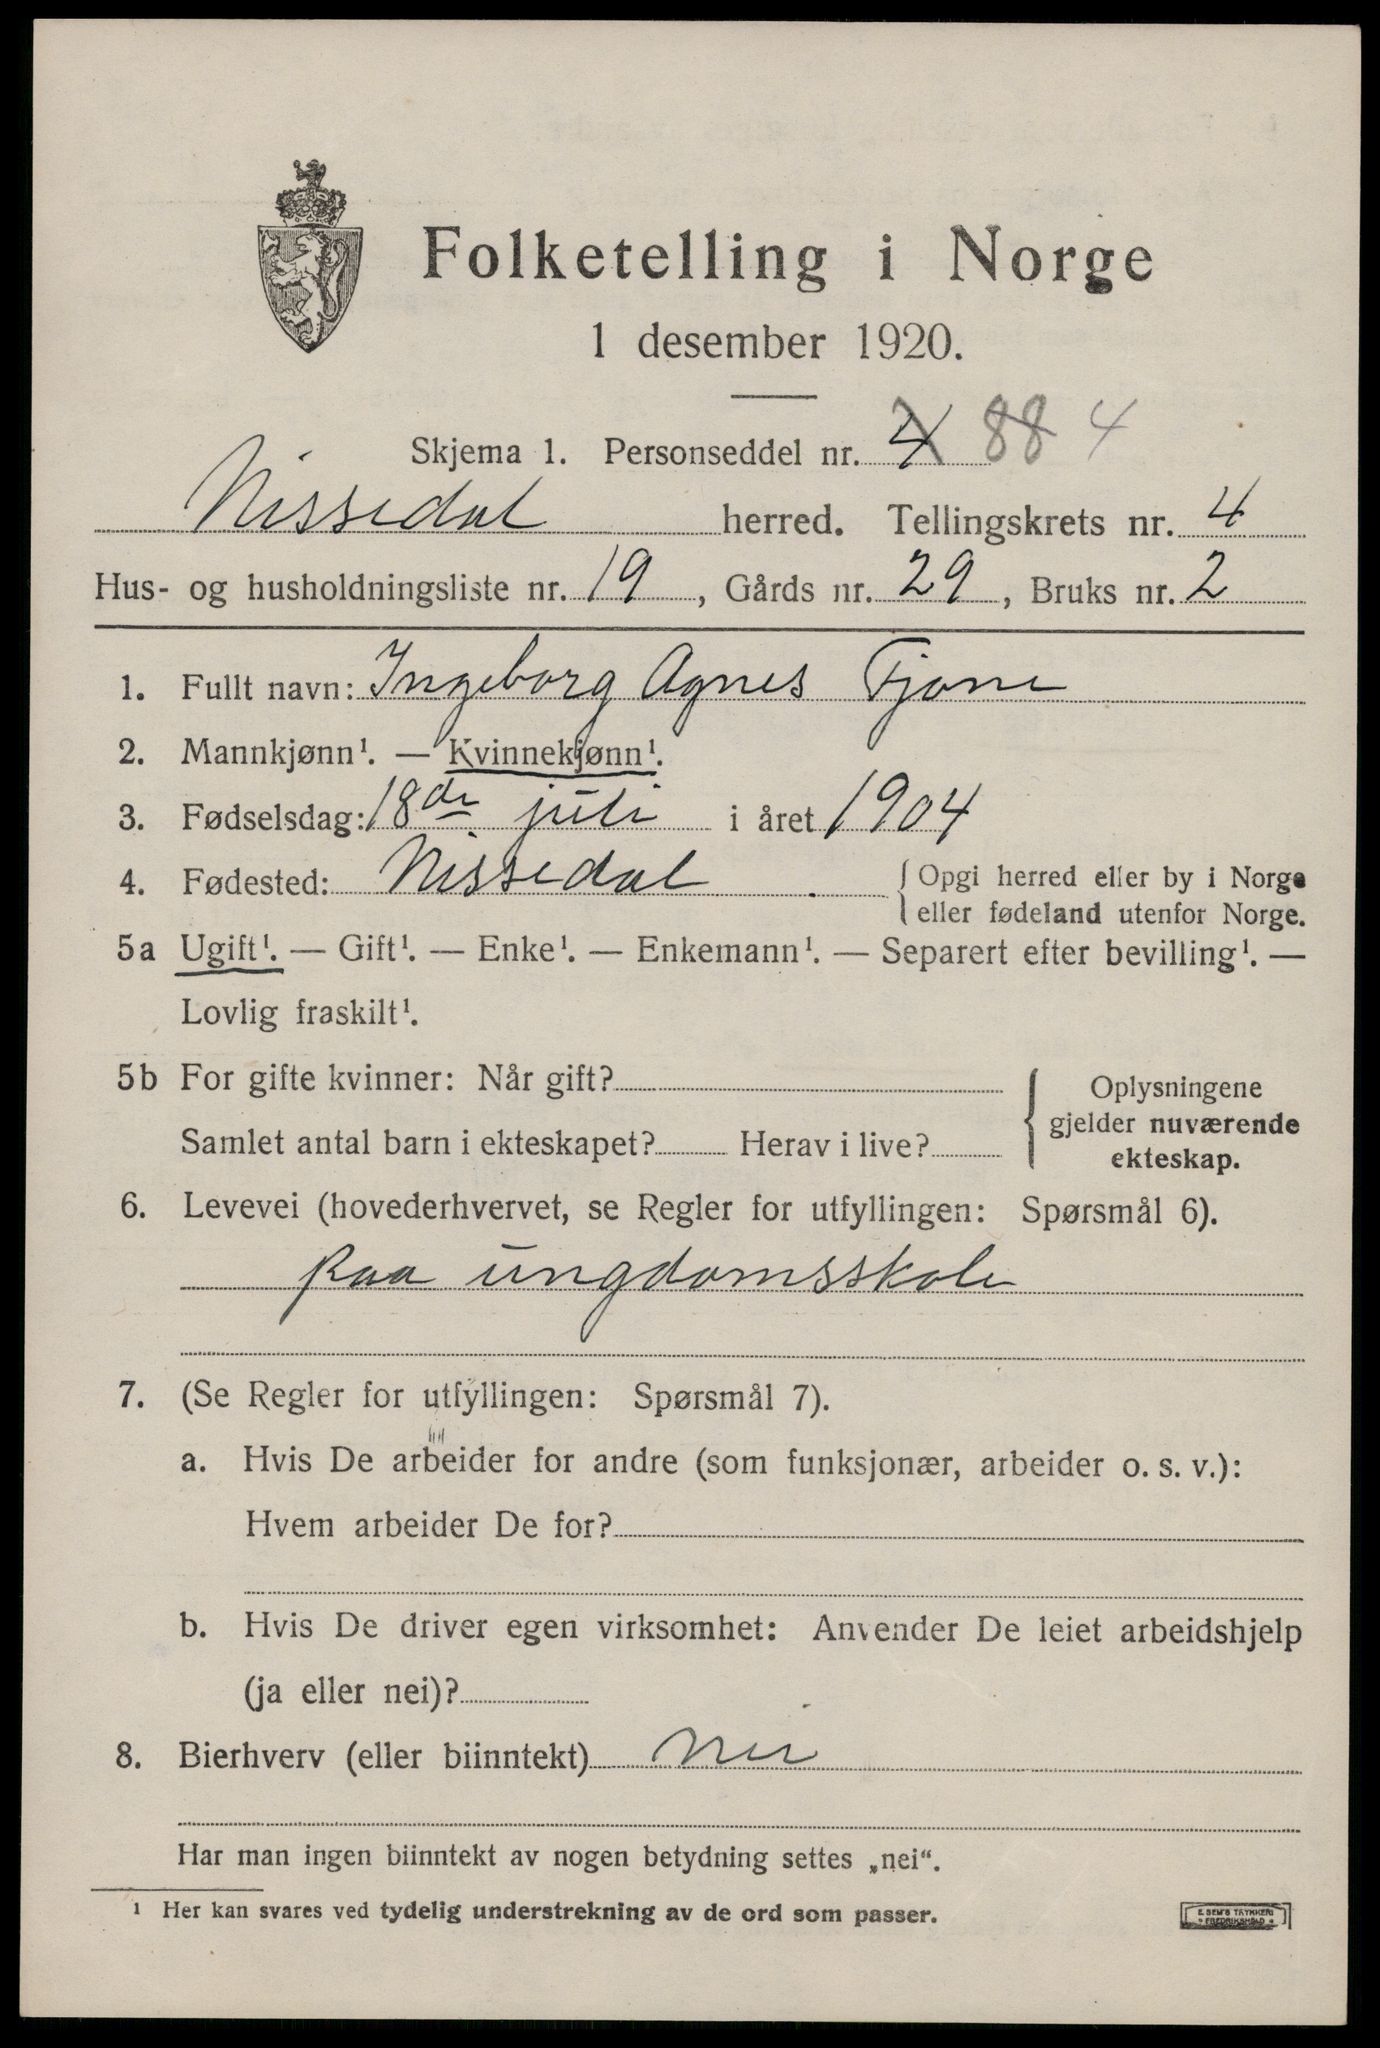 Folketelling i Norge
1 desember 1920.
Skjema 1. Personseddel nr. 4 88 4
Nissedal herred. Tellingskrets nr. 4
Hus- og husholdningsliste nr. 19, Gårds nr. 29, Bruks nr. 2
1. Fullt navn: Ingeborg Agnes Tjone
2. Mannkjønn¹. — Kvinnekjønn¹.
3. Fødselsdag: 18de juli i året 1904
4. Fødested: Nissedal { Opgi herred eller by i Norge
eller fødeland utenfor Norge.
5a Ugift¹. — Gift¹. — Enke¹. — Enkemann¹. — Separert efter bevilling¹. —
Lovlig fraskilt¹.
5b For gifte kvinner: Når gift?
Samlet antal barn i ekteskapet? Herav i live?
{ Oplysningene
gjelder nuværende
ekteskap.
6. Levevei (hovederhvervet, se Regler for utfyllingen: Spørsmål 6).
paa ungdomsskole
7. (Se Regler for utfyllingen: Spørsmål 7).
a. Hvis De arbeider for andre (som funksjonær, arbeider o. s. v.):
Hvem arbeider De for?
b. Hvis De driver egen virksomhet: Anvender De leiet arbeidshjelp
(ja eller nei)?
8. Bierhverv (eller biinntekt) Nei
Har man ingen biinntekt av nogen betydning settes „nei“.
¹ Her kan svares ved tydelig understrekning av de ord som passer.
E. SEM'S TRYKKERI
* FREDRIKSHALD *